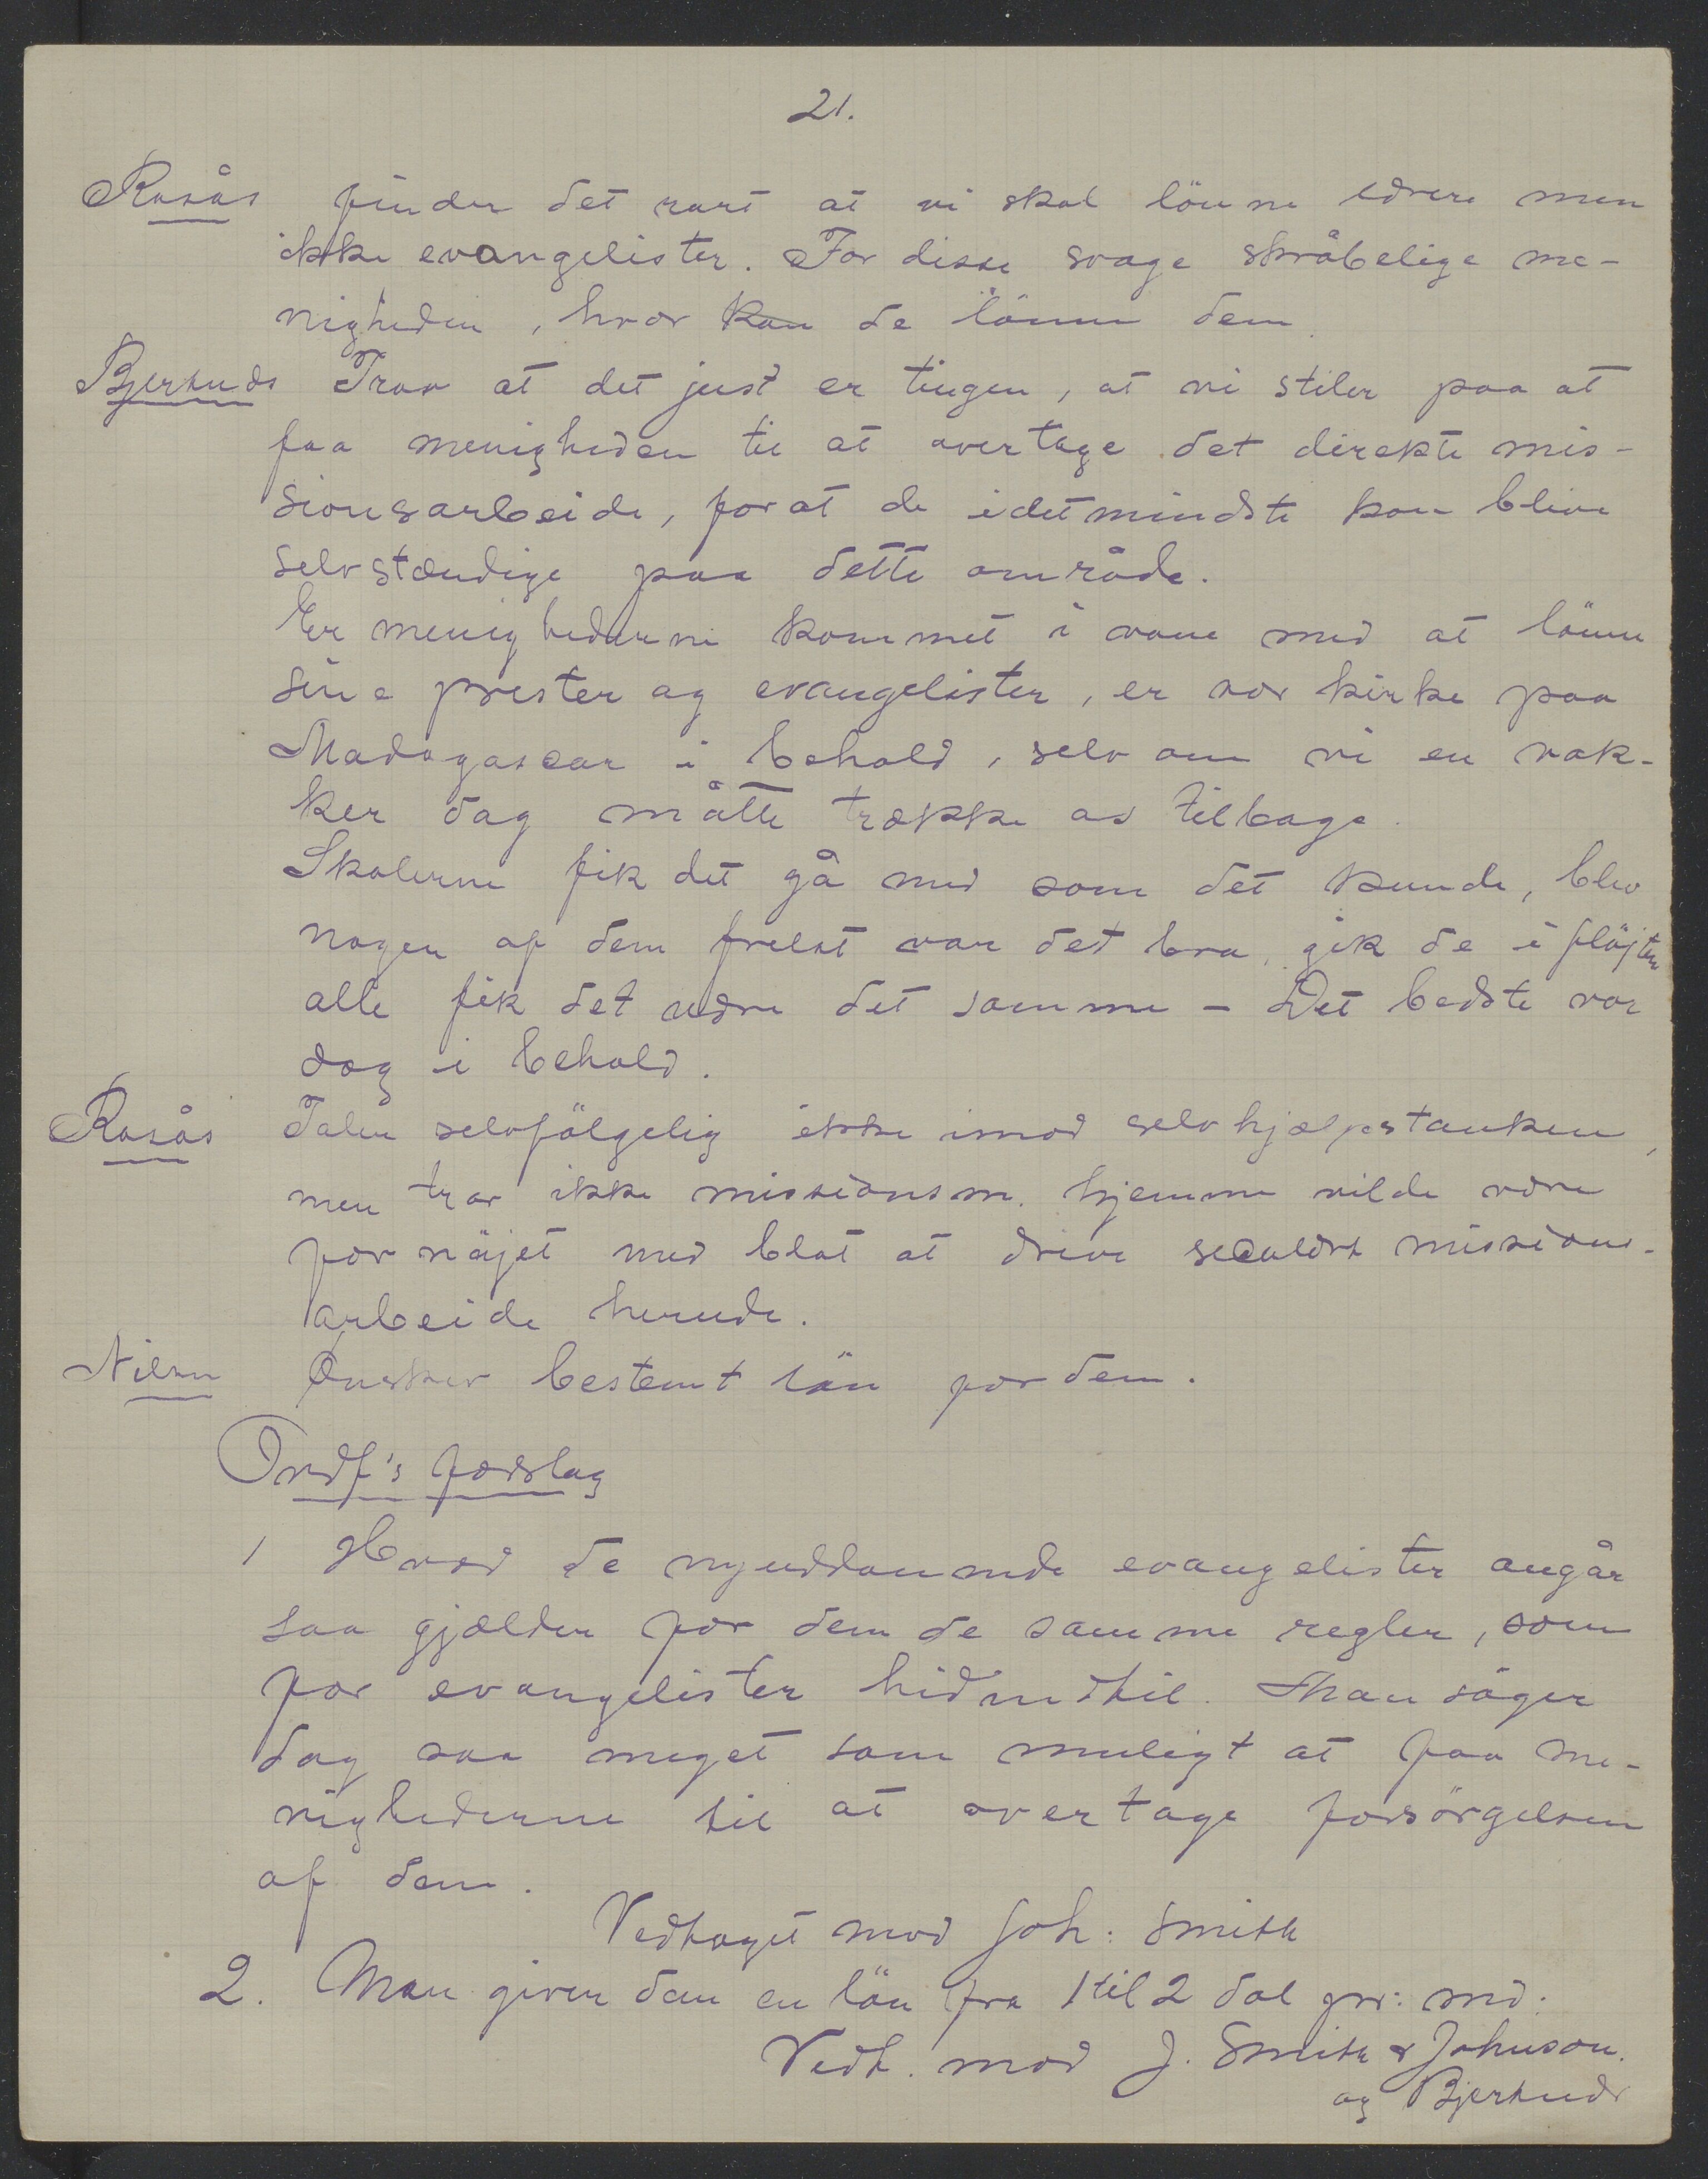 21.
Rosås finder det rart at vi skal lönne lærere men
ikke evangelister. For disse svage skrøbelige me-
nigheder, hvor kan de lönne dem
Bjertnæs Tror at det just er tingen, at vi stiler paa at
faa menigheden til at overtage det direkte mis-
sionsarbeide, forat de idetmindste kan blive
selvstændige paa dette område.
Er menighederne kommet i vane med at lönne
sine prester og evangelister, er vor kirke paa
Madagascar i behold, selv om vi en vak-
ker dag måtte trække os tilbage.
Skolerne fik det gå med som det kunde, blev
nogen af dem frelst var det bra, gik de i flöjten
alle fik det være det samme - Det bedste var
dog i behold.
Rosås Taler selvfölgelig ikke imod selvhjælpstanken,
men tror ikke missionsm. hjemme vilde være
fornöjet med blot at drive seculært missions-
arbeide herude.
Nilsen Ønsker bestemt lön for dem.
Ordf's forslag
1 Hvad de nyuddannede evangelister angår
saa gjælder for dem de samme regler, som
for evangelister hidindtil. Man söger
dog saa meget som muligt at faa me-
nighederne til at overtage forsörgelsen
af dem.
Vedtaget mod Joh: Smith
2. Man giver dem en lön fra 1 til 2 dol pr: md.
Vedt. mod J. Smith & Johnson.
og Bjertnæs